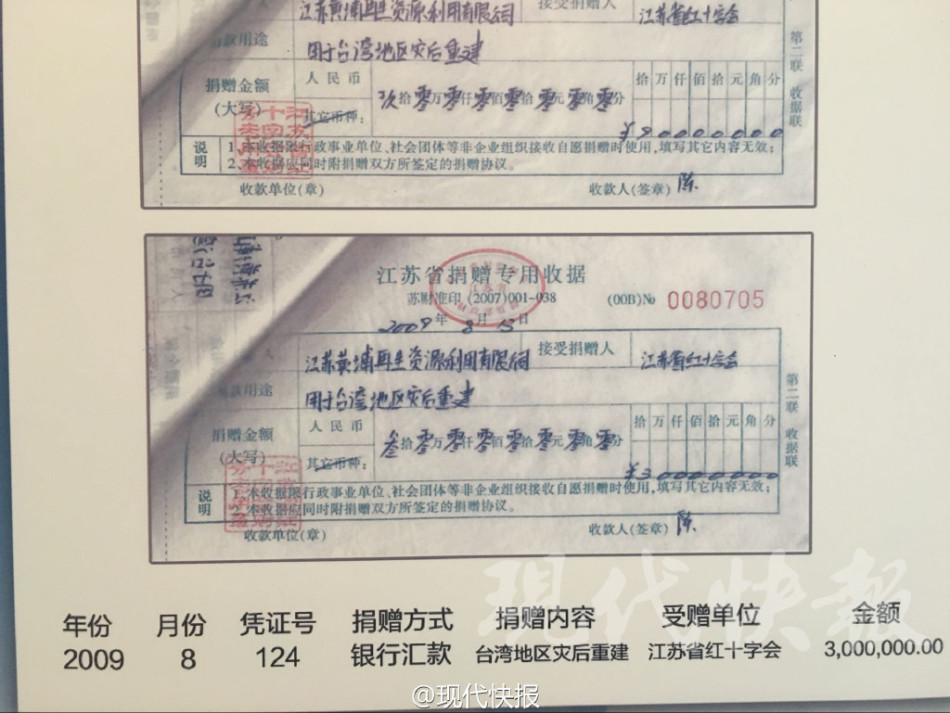 江苏黄埔再生资源利用有限公司 接受捐赠人 江苏省红十字会
款用途 用于台湾地区灾后重建
捐赠金额 人民币 玖拾零万零仟零佰零拾零元零角零分 拾万仟佰拾元角分
(大写) 其它币种: ¥90000000
第二联 收据联
说明 1.本收据限行政事业单位、社会团体等非企业组织接收自愿捐赠时使用,填写其它内容无效;
2.本收据应同时附捐赠双方所签定的捐赠协议。
收款单位(章) 收款人(签章) 陈
江苏省捐赠专用收据
苏财准印(2007)001-038 (00B)№ 0080705
2009年8月15日
江苏黄埔再生资源利用有限公司 接受捐赠人 江苏省红十字会
款用途 用于台湾地区灾后重建
捐赠金额 人民币 叁拾零万零仟零佰零拾零元零角零分 拾万仟佰拾元角分
(大写) 其它币种: ¥30000000
第二联 收据联
说明 1.本收据限行政事业单位、社会团体等非企业组织接收自愿捐赠时使用,填写其它内容无效;
本收据应同时附捐赠双方所签定的捐赠协议。
收款单位(章) 收款人(签章) 陈
现代快报
年份 月份 凭证号 捐赠方式 捐赠内容 受赠单位 金额
2009 8 124 银行汇款 台湾地区灾后重建 江苏省红十字会 3,000,000.00
@现代快报